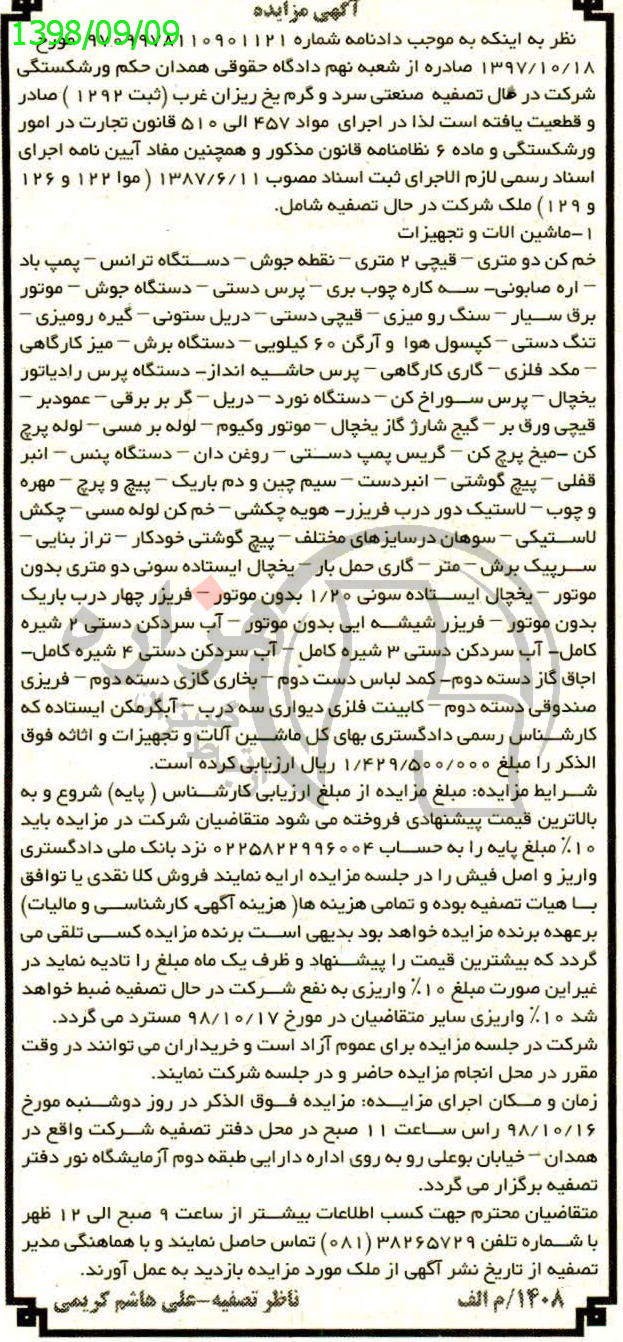 آگهی مزایده
1398/09/09
نظر به اینکه به موجب دادنامه شماره ۹۷۰۹۹۷۸۱۱۰۹۰۱۱۲۱ مورخ
۱۳۹۷/۱۰/۱۸ صادره از شعبه نهم دادگاه حقوقی همدان حکم ورشکستگی
شرکت در حال تصفیه صنعتی سرد و گرم یخ ریزان غرب (ثبت ۱۲۹۲ ) صادر
و قطعیت یافته است لذا در اجرای مواد ۴۵۷ الی ۵۱۰ قانون تجارت در امور
ورشکستگی و ماده ۶ نظامنامه قانون مذکور و همچنین مفاد آیین نامه اجرای
اسناد رسمی لازم الاجرای ثبت اسناد مصوب ۱۳۸۷/۶/۱۱ ( موا ۱۲۲ و ۱۲۶
و ۱۲۹) ملک شرکت در حال تصفیه شامل.
۱-ماشین الات و تجهیزات
خم کن دو متری – قیچی ۲ متری – نقطه جوش – دستگاه ترانس – پمپ باد
– اره صابونی- سه کاره چوب بری – پرس دستی – دستگاه جوش – موتور
برق سیار – سنگ رو میزی – قیچی دستی – دریل ستونی – گیره رومیزی –
تنگ دستی – کپسول هوا و آرگن ۶۰ کیلویی – دستگاه برش – میز کارگاهی
– مکد فلزی – گاری کارگاهی – پرس حاشیه انداز- دستگاه پرس رادیاتور
یخچال – پرس سوراخ کن – دستگاه نورد – دریل – گر بر برقی – عمودبر –
قیچی ورق بر – گیج شارژ گاز یخچال – موتور وکیوم – لوله بر مسی – لوله پرچ
کن -میخ پرچ کن – گریس پمپ دستی – روغن دان – دستگاه پنس – انبر
قفلی – پیچ گوشتی – انبردست – سیم چین و دم باریک – پیچ و پرچ – مهره
و چوب – لاستیک دور درب فریزر- هویه چکشی – خم کن لوله مسی – چکش
لاستیکی – سوهان درسایزهای مختلف – پیچ گوشتی خودکار – تراز بنایی –
سرپیک برش – متر – گاری حمل بار – یخچال ایستاده سونی دو متری بدون
موتور – یخچال ایستاده سونی ۱/۲۰ بدون موتور – فریزر چهار درب باریک
بدون موتور – فریزر شیشه ایی بدون موتور – آب سردکن دستی ۲ شیره
کامل- آب سردکن دستی ۳ شیره کامل – آب سردکن دستی ۴ شیره کامل–
اجاق گاز دسته دوم- کمد لباس دست دوم – بخاری گازی دسته دوم – فریزی
صندوقی دسته دوم – کابینت فلزی دیواری سه درب – آبگرمکن ایستاده که
کارشناس رسمی دادگستری بهای کل ماشین آلات و تجهیزات و اثاثه فوق
الذکر را مبلغ ۱/۴۲۹/۵۰۰/۰۰۰ ریال ارزیابی کرده است.
شرایط مزایده: مبلغ مزایده از مبلغ ارزیابی کارشناس ( پایه) شروع و به
بالاترین قیمت پیشنهادی فروخته می شود متقاضیان شرکت در مزایده باید
۱۰٪ مبلغ پایه را به حساب ۰۲۲۵۸۲۲۹۹۶۰۰۴ نزد بانک ملی دادگستری
واریز و اصل فیش را در جلسه مزایده ارایه نمایند فروش کلا نقدی یا توافق
با هیات تصفیه بوده و تمامی هزینه ها( هزینه آگهی، کارشناسی و مالیات)
برعهده برنده مزایده خواهد بود بدیهی است برنده مزایده کسی تلقی می
گردد که بیشترین قیمت را پیشنهاد و ظرف یک ماه مبلغ را تادیه نماید در
غیراین صورت مبلغ ۱۰٪ واریزی به نفع شرکت در حال تصفیه ضبط خواهد
شد ۱۰٪ واریزی سایر متقاضیان در مورخ ۹۸/۱۰/۱۷ مسترد می گردد.
شرکت در جلسه مزایده برای عموم آزاد است و خریداران می توانند در وقت
مقرر در محل انجام مزایده حاضر و در جلسه شرکت نمایند.
زمان و مکان اجرای مزایده: مزایده فوق الذکر در روز دوشنبه مورخ
۹۸/۱۰/۱۶ راس ساعت ۱۱ صبح در محل دفتر تصفیه شرکت واقع در
همدان – خیابان بوعلی رو به روی اداره دارایی طبقه دوم آزمایشگاه نور دفتر
تصفیه برگزار می گردد.
متقاضیان محترم جهت کسب اطلاعات بیشتر از ساعت ۹ صبح الی ۱۲ ظهر
با شماره تلفن ۳۸۲۶۵۷۲۹ (۰۸۱) تماس حاصل نمایند و با هماهنگی مدیر
تصفیه از تاریخ نشر آگهی از ملک مورد مزایده بازدید به عمل آورند.
۱۴۰۸/م الف
ناظر تصفیه-علی هاشم کریمی